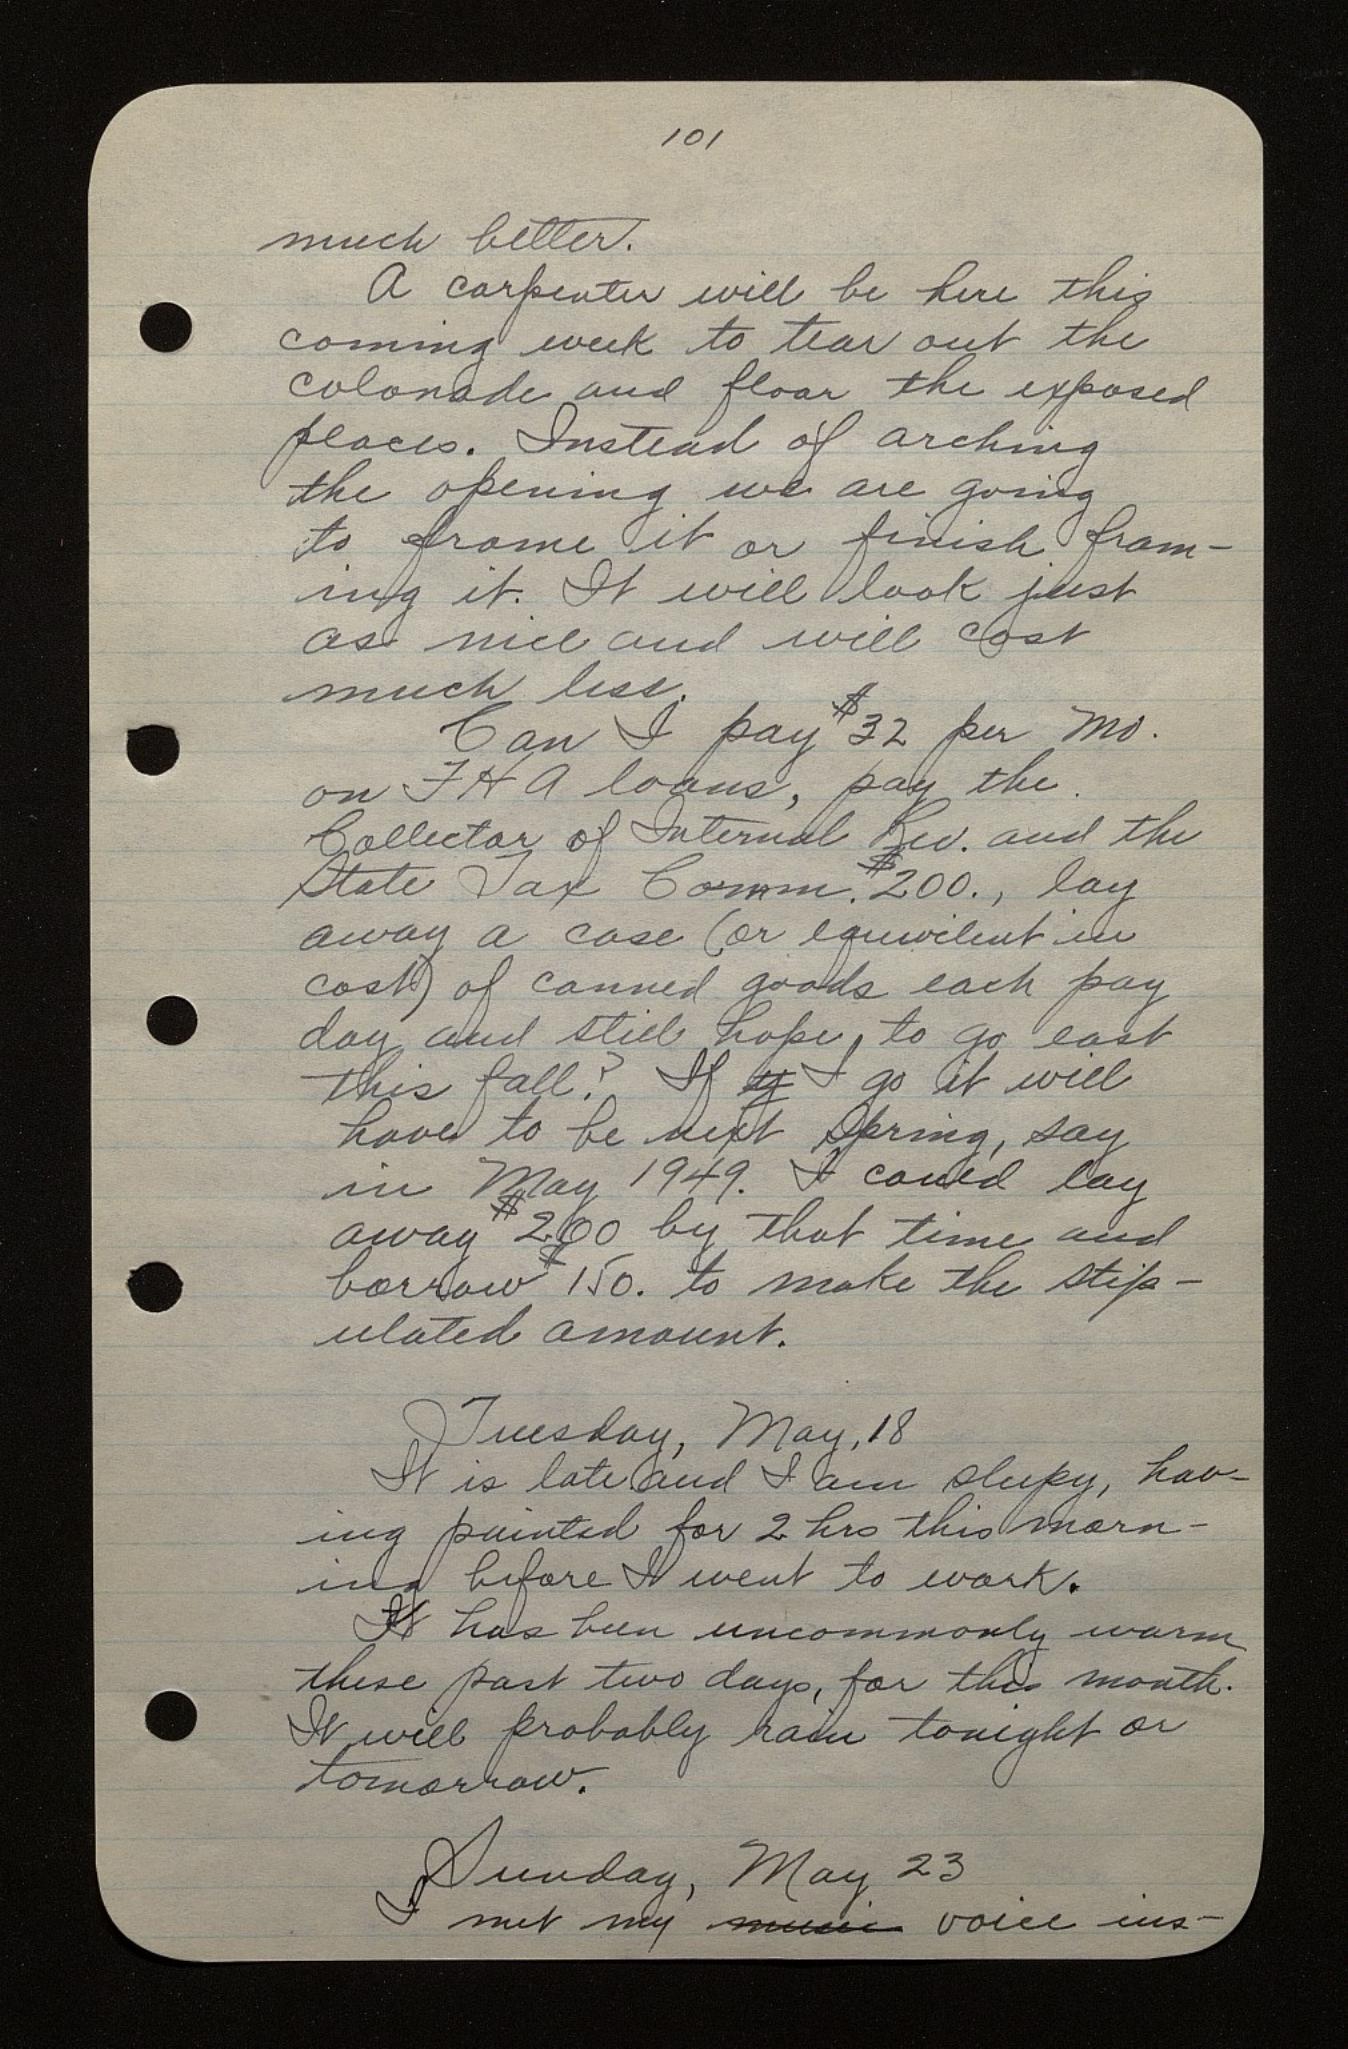 101
much better.
A carpenter will be here this
coming week to tear out the
colonade and floor the exposed
places. Instead of arching
the opening we are going
to frame it or finish fram-
ing it. It will look just
as nice and will cost
much less.
Can I pay $32 per mo.
on FHA loans, pay the
Collector of Internal Rev. and the
State Tax Comm. $200., lay
away a case (or equivilent in
cost) of canned goods each pay
day and still hope to go east
this fall? If I go it will
have to be next spring, say
in May 1949. I could lay
away $200 by that time and
borrow $150. to make the stip-
ulated amount.
Tuesday, May, 18
It is late and I am sleepy, hav-
ing painted for 2 hrs this morn-
ing before I went to work.
It has been uncommonly warm
these past two days, for this month.
It will probably rain tonight or
tomorrow.
Sunday, May 23
I met my music voice ins-